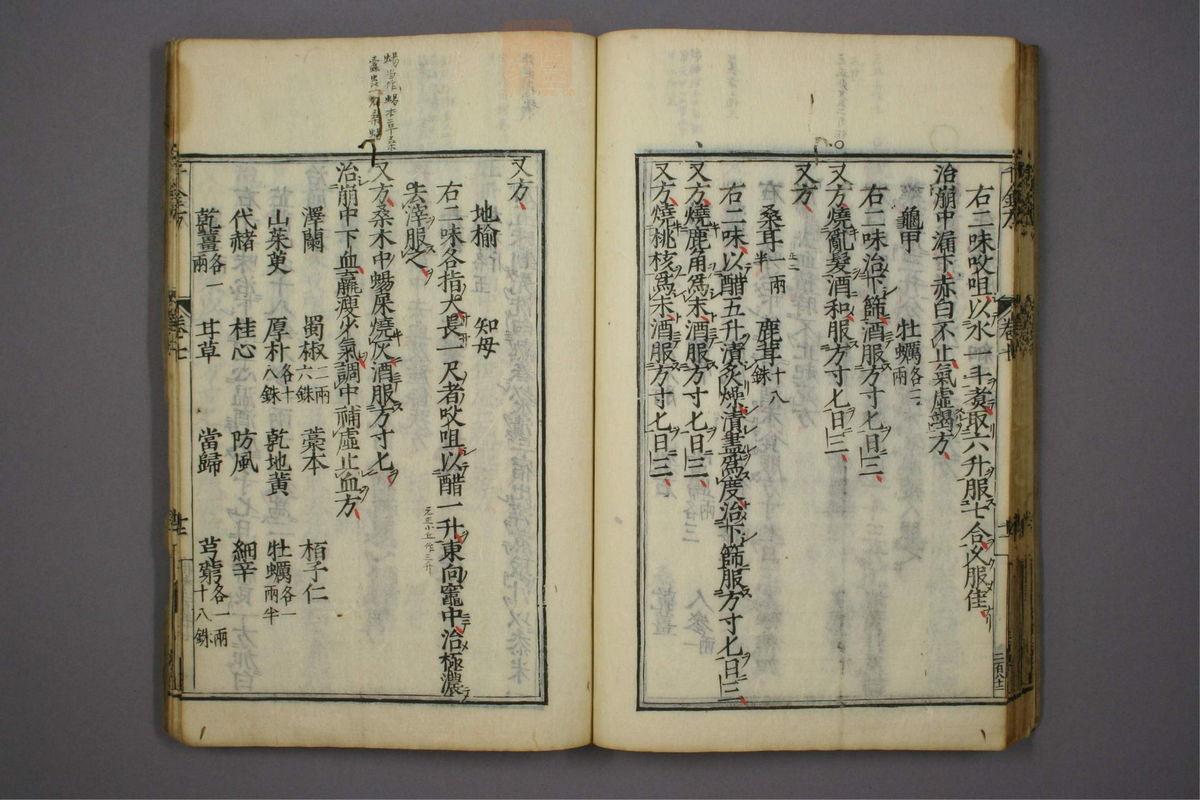 右二味㕮咀以水一斗煮取六升服七合久服佳
治崩中漏下赤白不止氣虛竭方
龜甲 牡蠣各三兩
右二味治下篩酒服方寸匕日三
又方燒亂髮酒和服方寸匕日三
又方
桑耳二兩半 鹿茸十八銖
右二味以醋五升漬炙燥漬盡爲度治下篩服方寸匕日三
又方燒鹿角爲末酒服方寸匕日三
又方燒桃核爲末酒服方寸匕日三
又方
地榆 知母
右二味各指大長一尺者㕮咀以醋一升東向竈中治極濃
去滓服之
又方桑木中蝎屎燒灰酒服方寸匕
治崩中下血羸瘦少氣調中補虛止血方
澤蘭 蜀椒二兩六銖 藁本 栢子仁
山茱萸 厚朴各十八銖 乾地黃 牡蠣各一兩半
代赭 桂心 防風 細辛
乾薑各一兩 甘草 當歸 芎藭各一兩十八銖
千金方 卷七